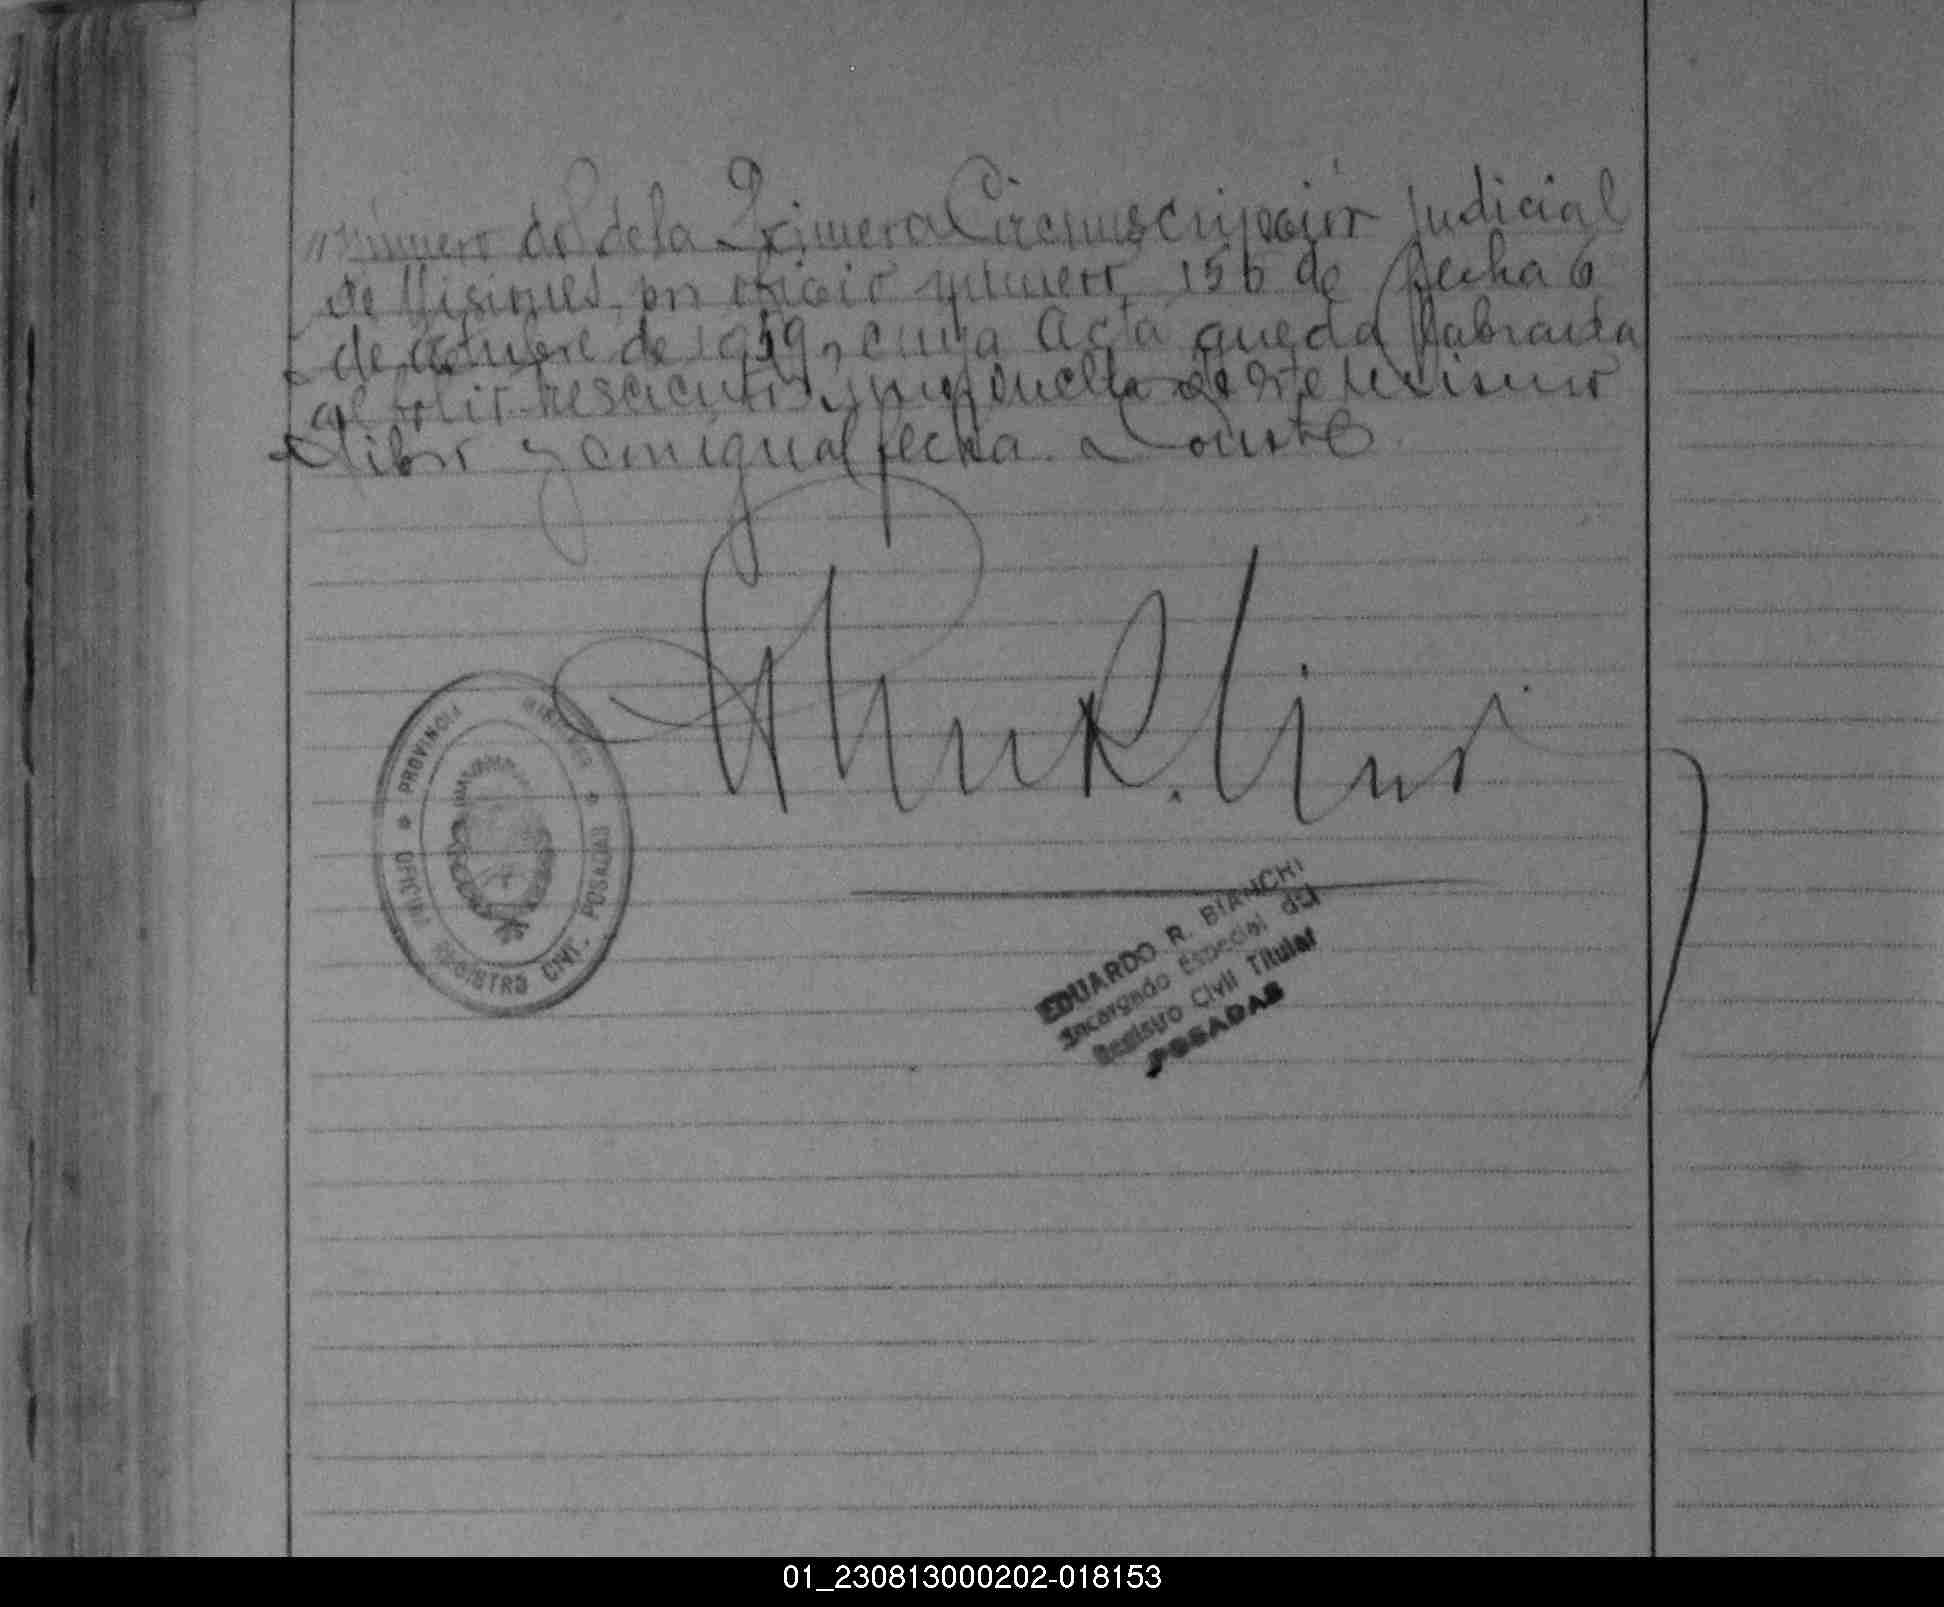 número dos de la Primera Circunscripción Judicial
de Misiones, en oficio número 156 de fecha 6
de Octubre de 1959, cuya Acta queda labrada
al folio y vuelta de este mismo
libro y en igual fecha. Conste
PROVINCIA MISIONES
OFICINA REGISTRO CIVIL POSADAS
EDUARDO R. BIANCHI
Encargado Especial del
Registro Civil Titular
POSADAS
01_230813000202-018153